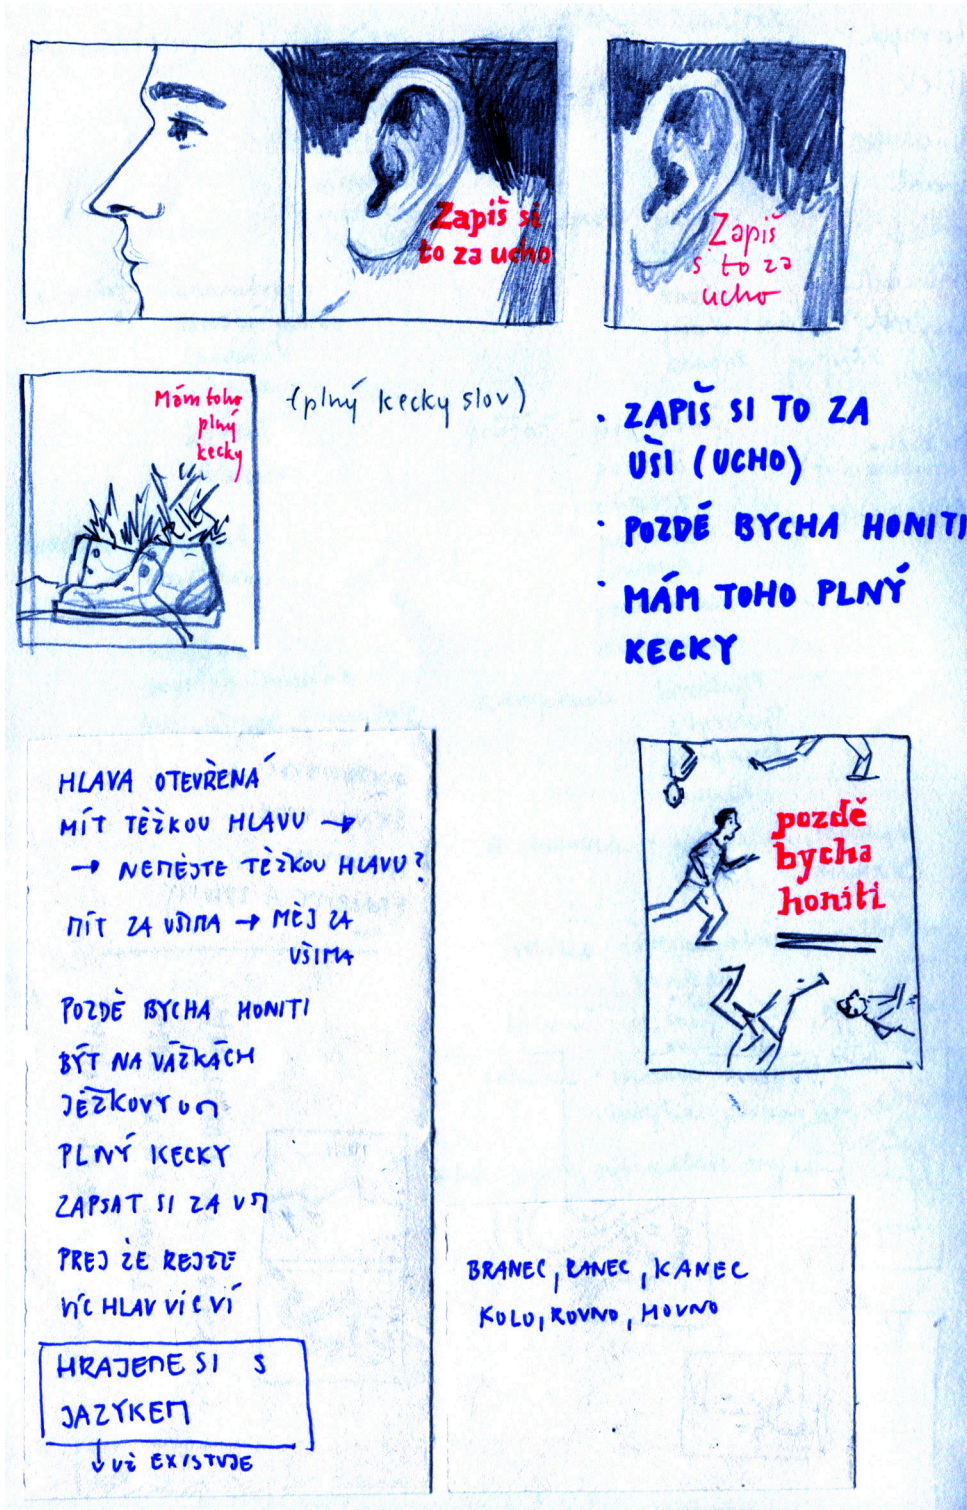 Zapiš si
to za ucho
Zapiš
si to za
ucho
Mám toho
plný
kecky
(plný kecky slov)
· ZAPIŠ SI TO ZA
UŠI (UCHO)
· POZDĚ BYCHA HONITI
· MÁM TOHO PLNÝ
KECKY
HLAVA OTEVŘENÁ
MÍT TĚŽKOU HLAVU →
→ NEMĚJTE TĚŽKOU HLAVU?
MÍT ZA UŠIMA → MĚJ ZA
UŠIMA
POZDĚ BYCHA HONITI
BÝT NA VÁŽKÁCH
JEŽKOVY
PLNÝ KECKY
ZAPSAT SI ZA UŠI
PREJ ŽE
VÍC HLAV VÍC VÍ
HRAJEME SI S
JAZYKEM
↓ UŽ EXISTUJE
pozdě
bycha
honiti
BRANEC, RANEC, KANEC
KOLO, ROVNO, HOVNO